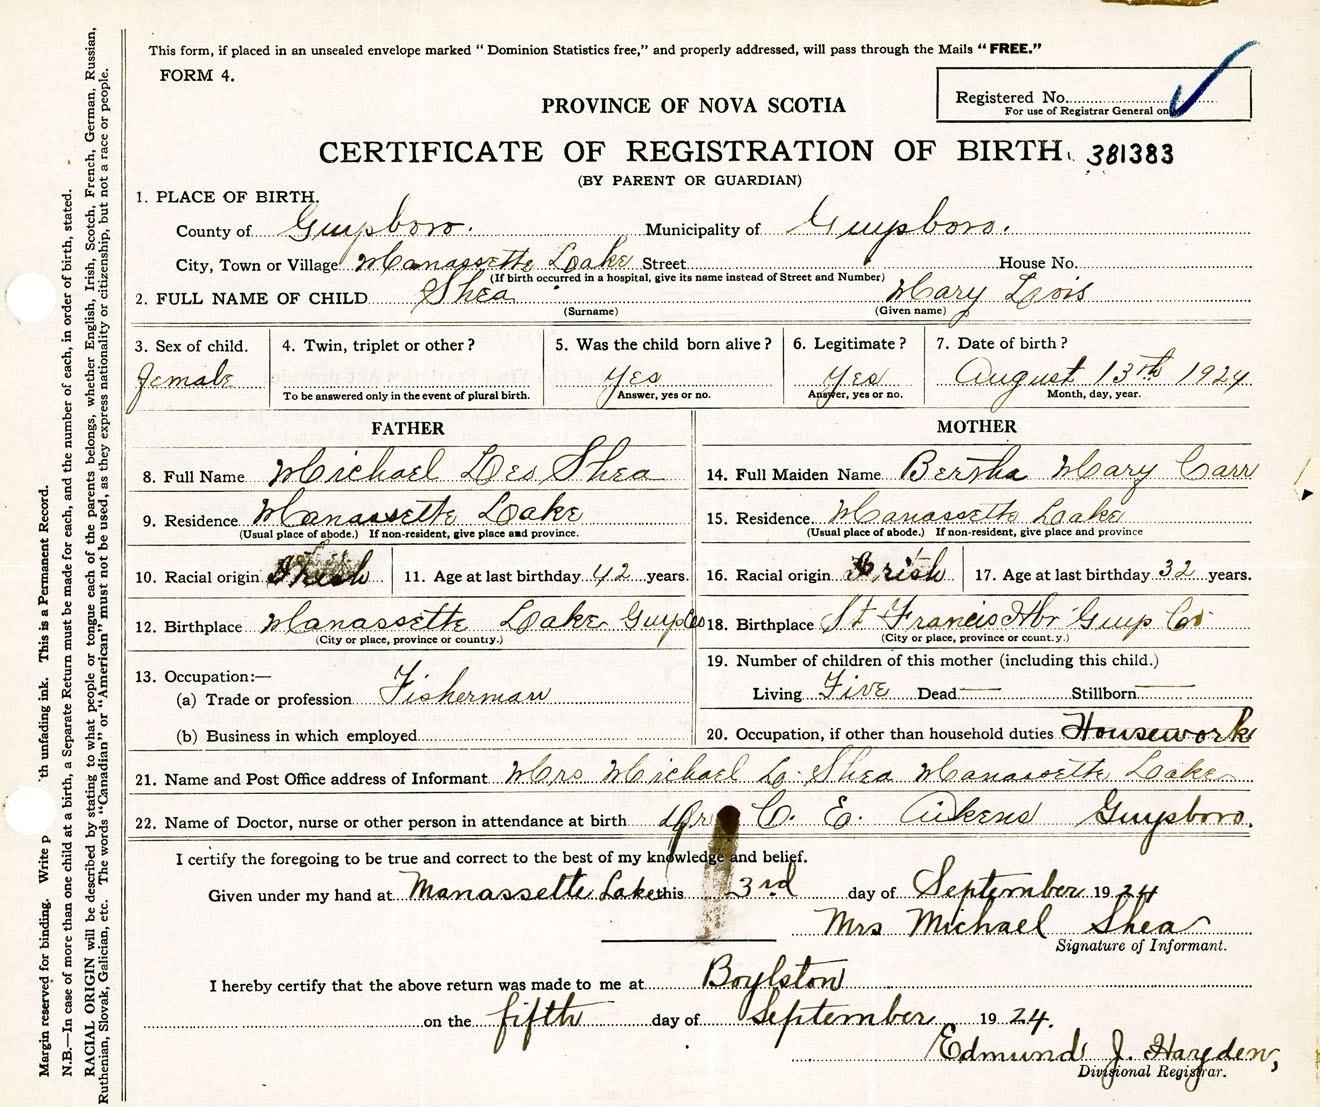 This form, if placed in an unsealed envelope marked " Dominion Statistics free," and properly addressed, will pass through the Mails "FREE."
FORM 4.
Registered No.
For use of Registrar General on
PROVINCE OF NOVA SCOTIA
CERTIFICATE OF REGISTRATION OF BIRTH. 381383
(BY PARENT OR GUARDIAN)
1. PLACE OF BIRTH.
County of Guysboro. Municipality of Guysboro.
City, Town or Village Manassette Lake Street House No.
(If birth occurred in a hospital, give its name instead of Street and Number)
2. FULL NAME OF CHILD Shea Mary Lois
(Surname) (Given name)
3. Sex of child. 4. Twin, triplet or other? 5. Was the child born alive? 6. Legitimate? 7. Date of birth?
female Yes Yes August 13th 1924
To be answered only in the event of plural birth. Answer, yes or no. Answer, yes or no. Month, day, year.
FATHER MOTHER
8. Full Name Michael Les Shea 14. Full Maiden Name Bertha Mary Carr
9. Residence Manassette Lake 15. Residence. Manassette Lake
(Usual place of abode.) If non-resident, give place and province. (Usual place of abode.) If non-resident, give place and province
10. Racial origin Irish 11. Age at last birthday 42 years. 16. Racial origin Irish 17. Age at last birthday 32 years.
12. Birthplace Manassette Lake Guys Co 18. Birthplace St Francis Hbr Guys Co
(City or place, province or country.) (City or place, province or country.)
13. Occupation:—
19. Number of children of this mother (including this child.)
(a) Trade or profession Fisherman Living Five Dead — Stillborn —
(b) Business in which employed 20. Occupation, if other than household duties Housework
21. Name and Post Office address of Informant Mrs Michael L. Shea Manassette Lake
22. Name of Doctor, nurse or other person in attendance at birth Dr C. E. Aikens Guysboro.
I certify the foregoing to be true and correct to the best of my knowledge and belief.
Given under my hand at Manassette Lake this 3rd day of September 1924
Mrs Michael Shea
Signature of Informant.
I hereby certify that the above return was made to me at Boylston
on the fifth day of September 1924.
Edmund J. Hayden,
Divisional Registrar.
Margin reserved for binding. Write p th unfading ink. This is a Permanent Record.
N.B.—In case of more than one child at a birth, a Separate Return must be made for each, and the number of each, in order of birth, stated.
RACIAL ORIGIN will be described by stating to what people or tongue each of the parents belongs, whether English, Irish, Scotch, French, German, Russian,
Ruthenian, Slovak, Galician, etc. The words "Canadian" or "American" must not be used, as they express nationality or citizenship, but not a race or people.